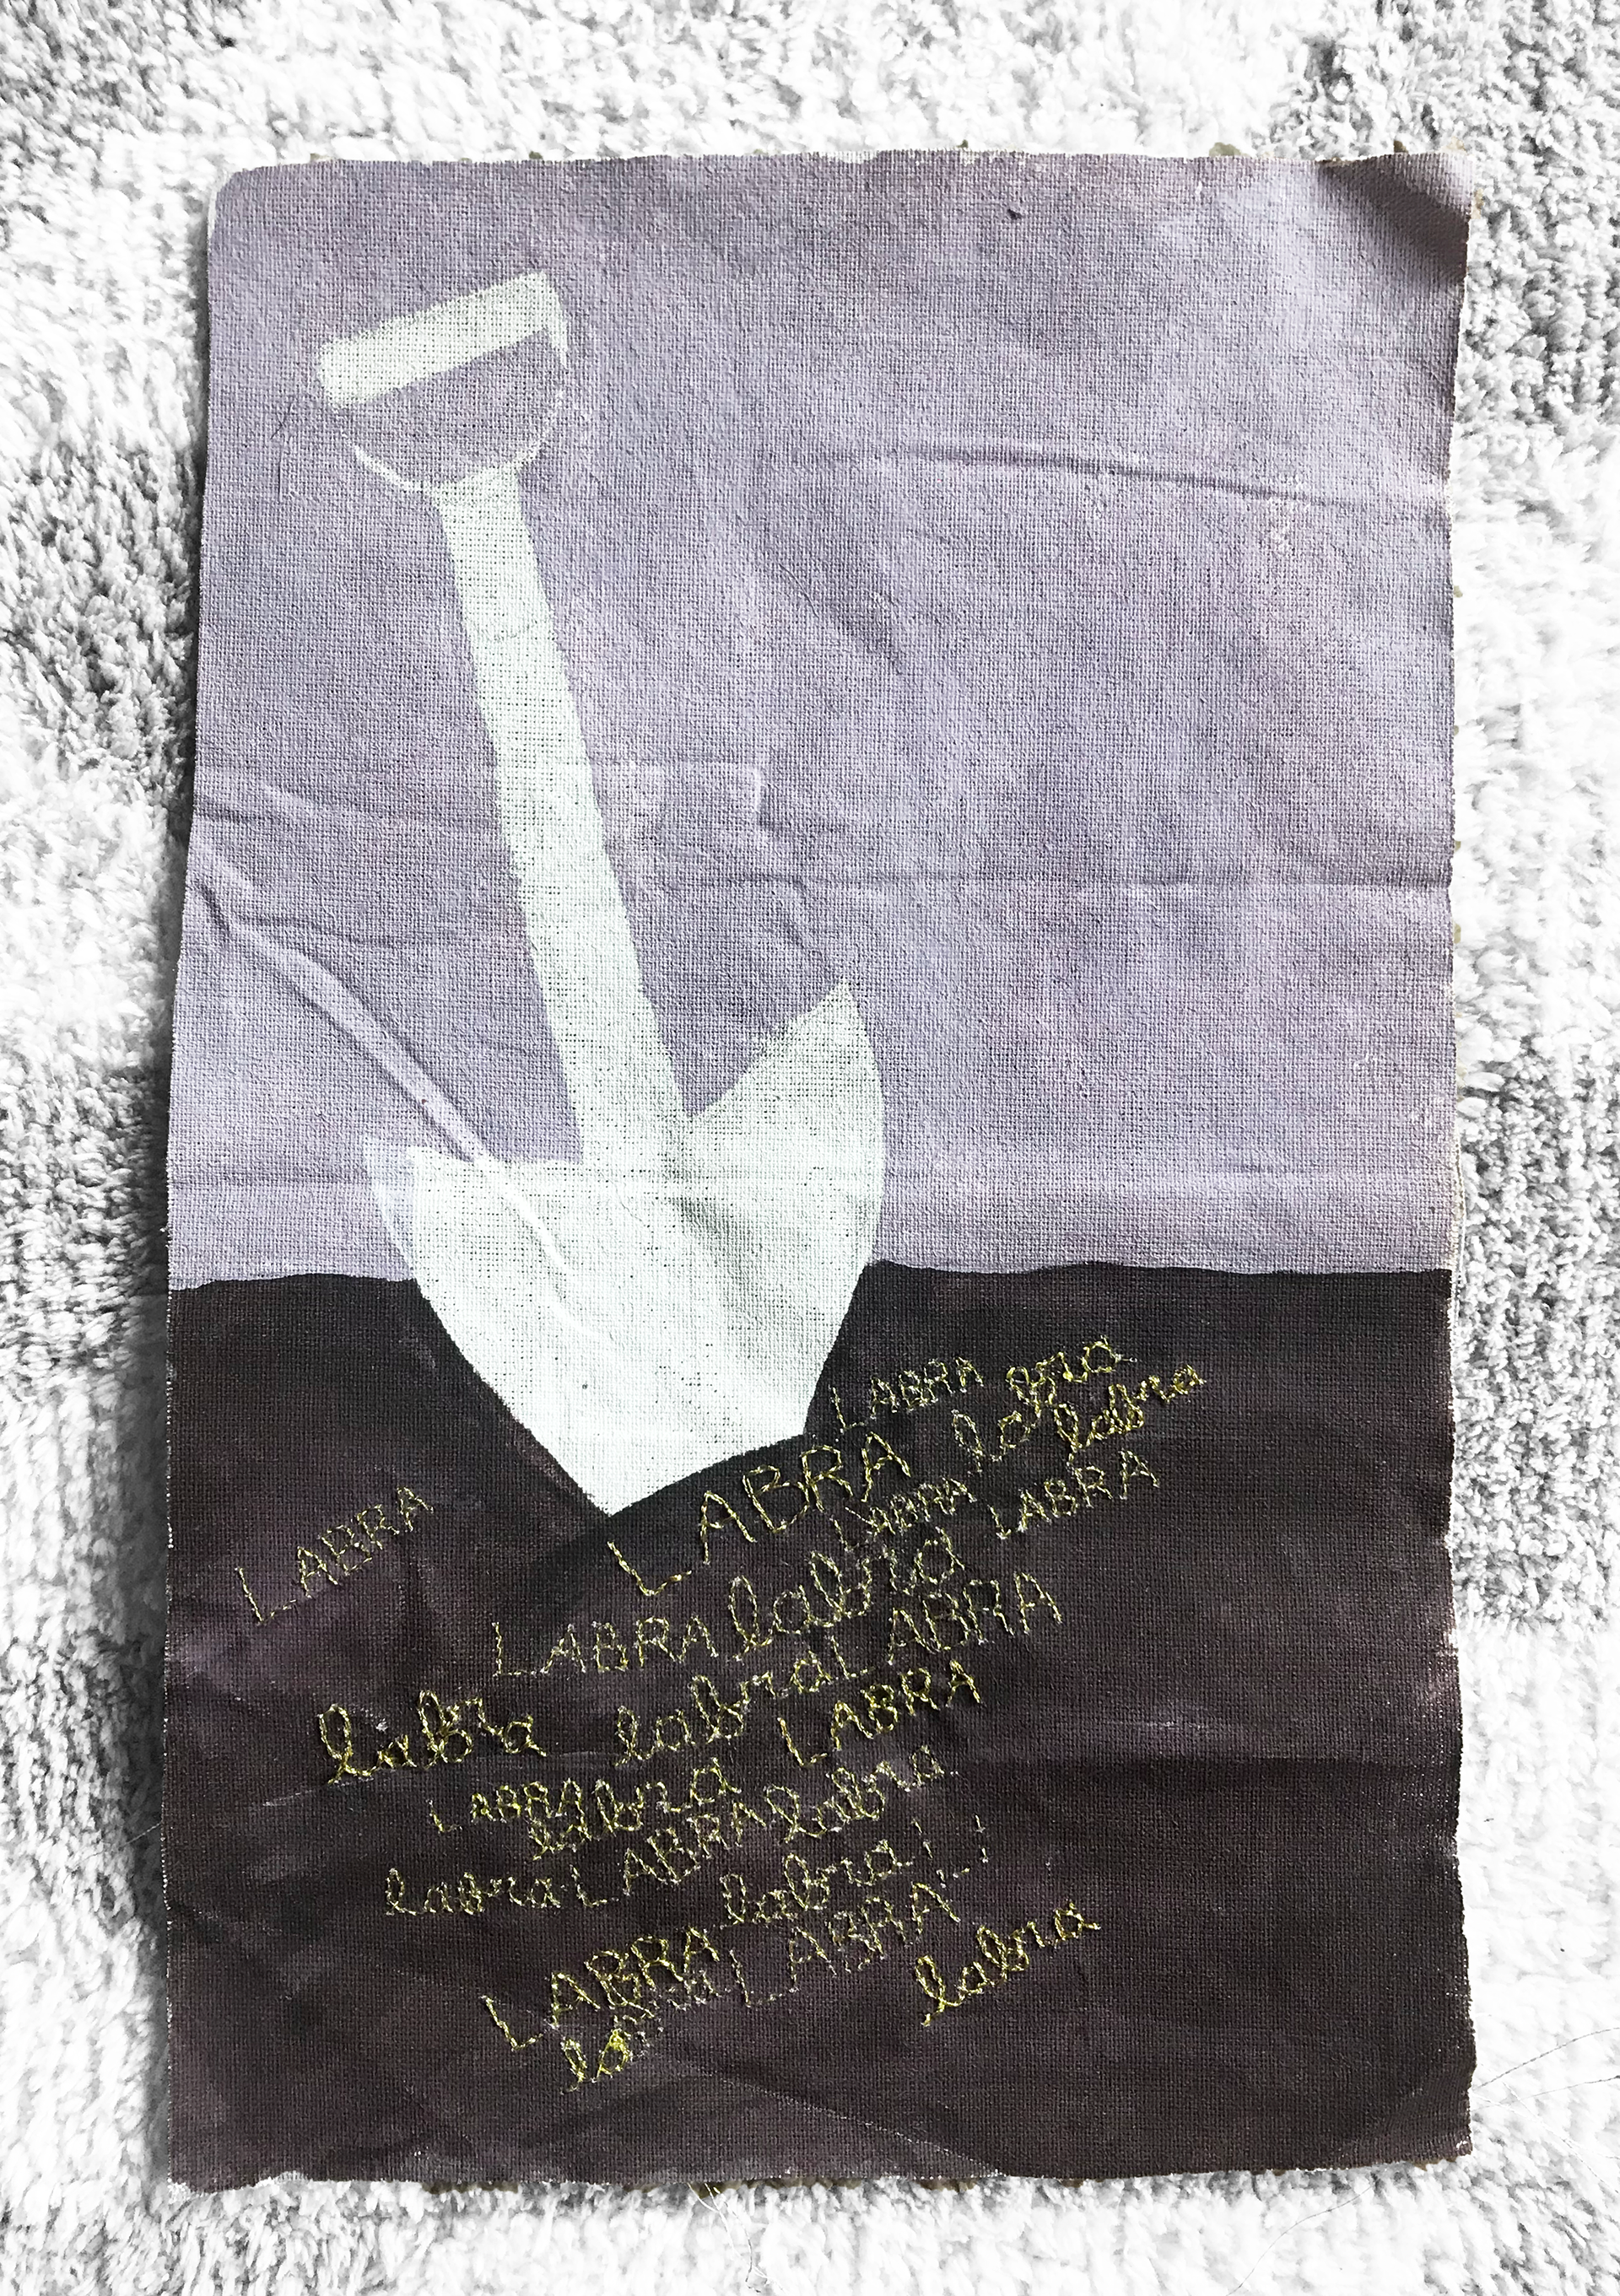 LABRA labra
LABRA labra labra
LABRA LABRA LABRA
LABRA labra LABRA
labra labra LABRA
LABRA labra labra
labra LABRA labra
LABRA labra LABRA
labra